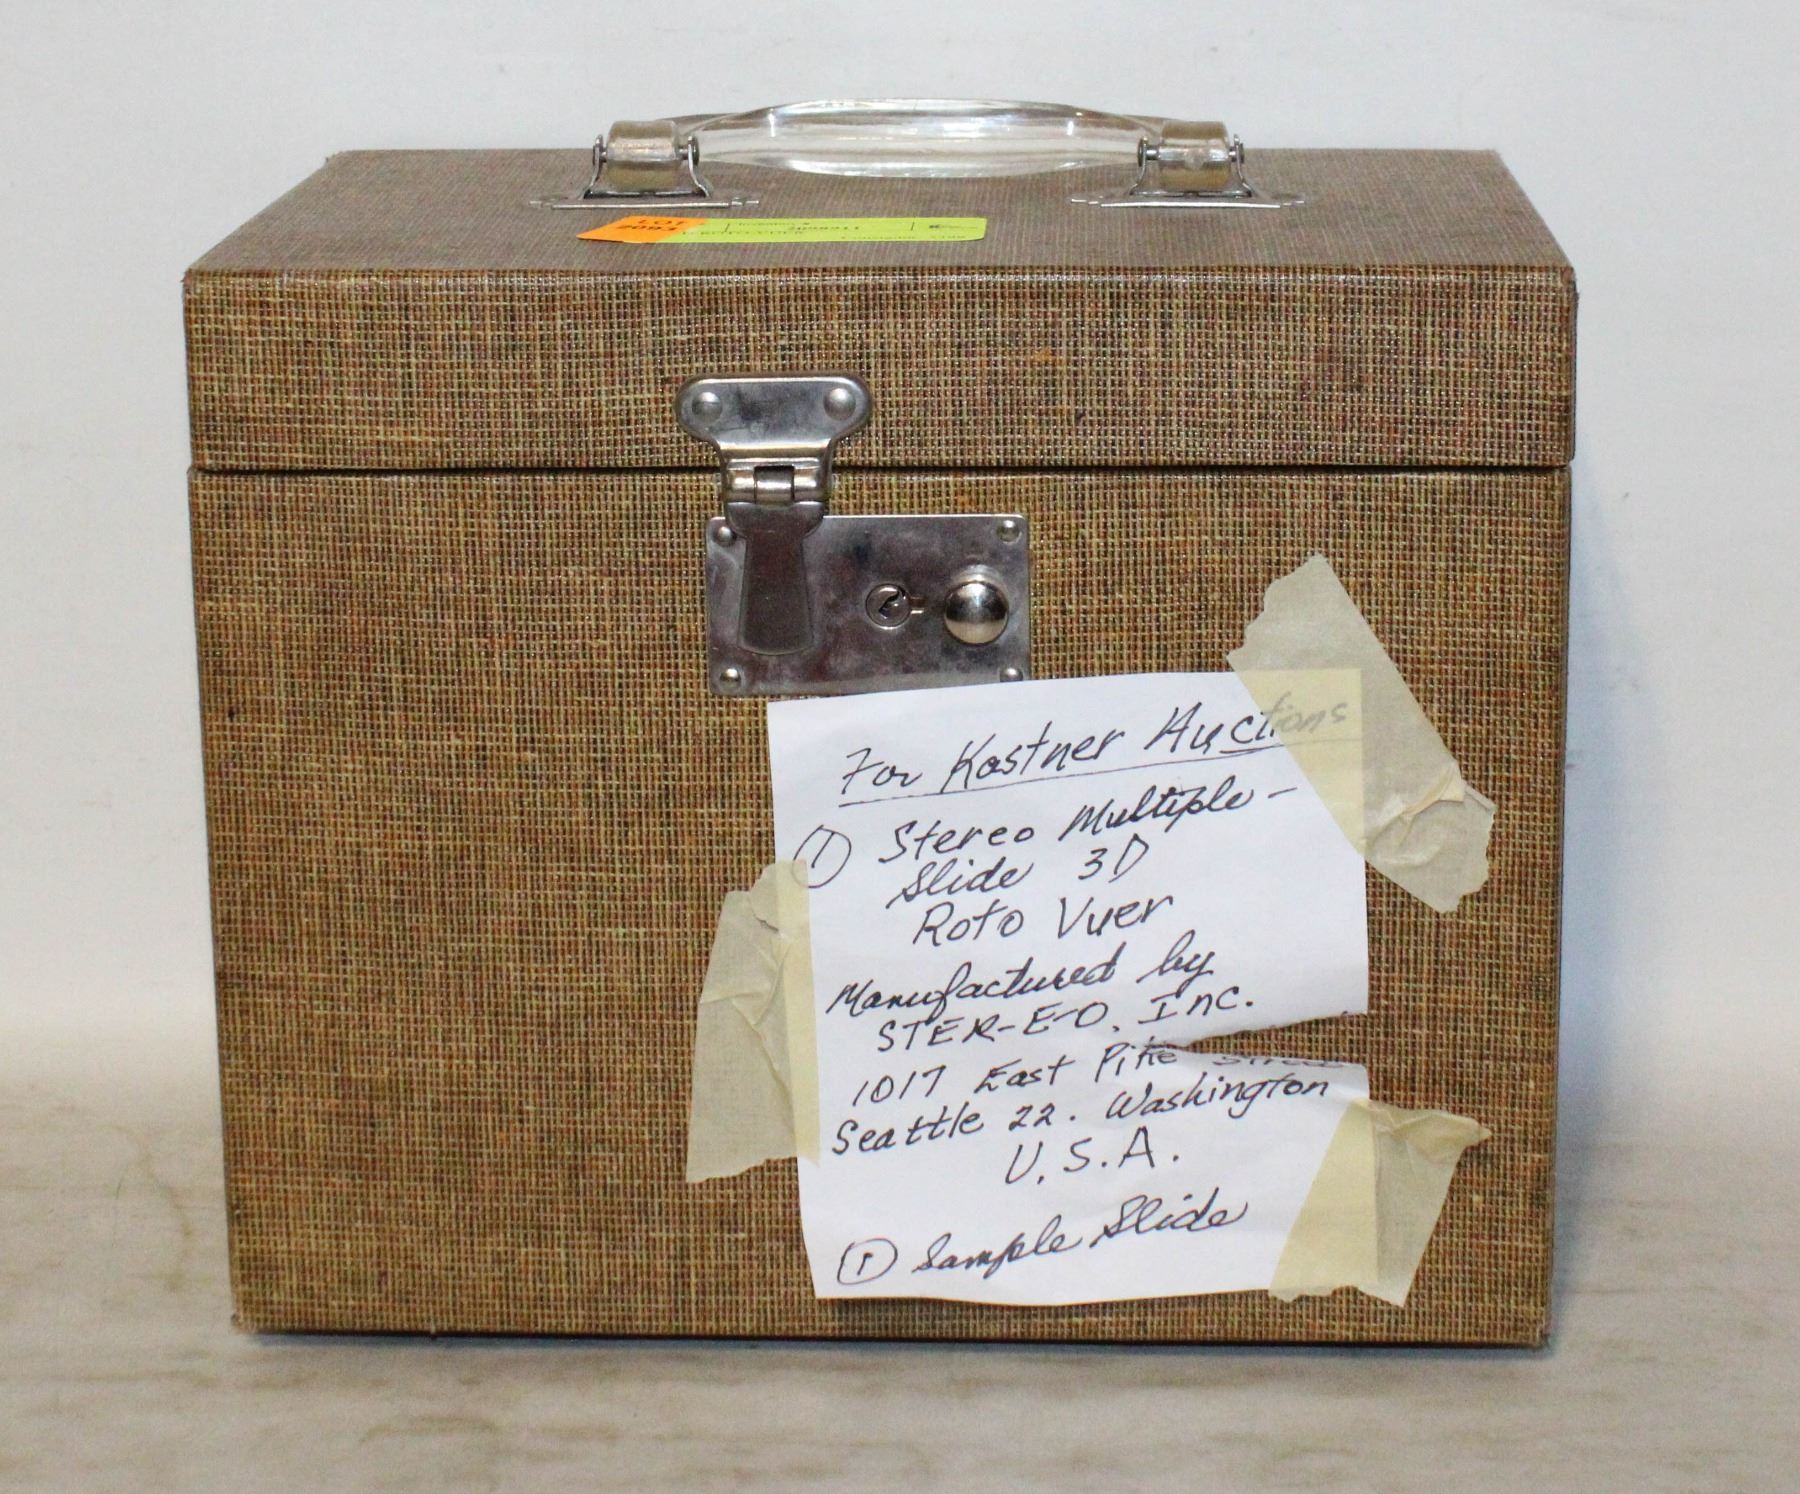 LOT
2093
For Kastner Auctions
① Stereo Multiple-
Slide 3D
Roto Vuer
Manufactured by
STER-E-O, Inc.
1017 East Pike Street
Seattle 22. Washington
U.S.A.
① Sample Slide